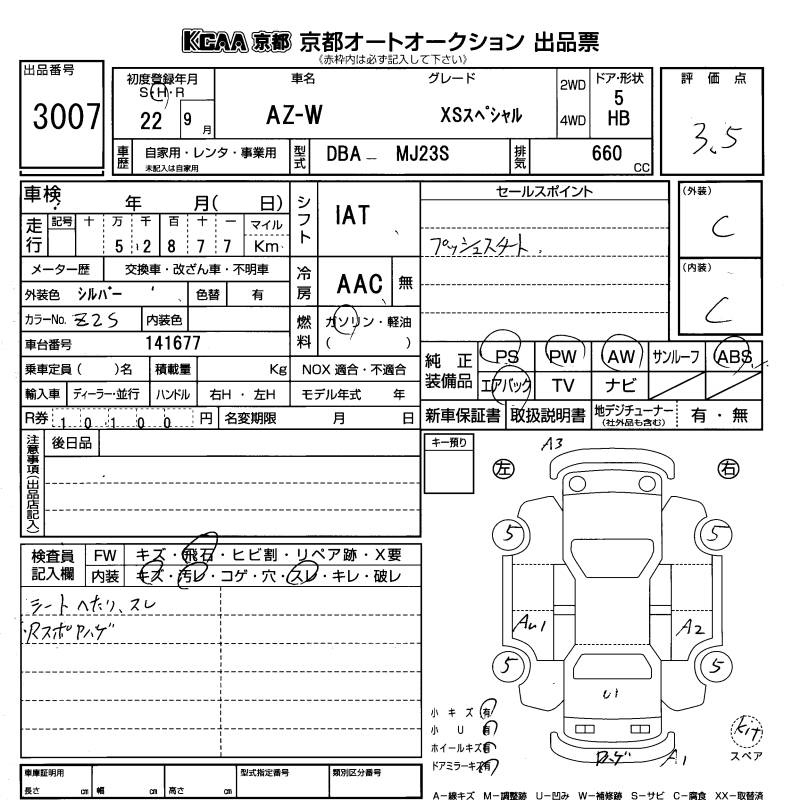 KCAA 京都 京都オートオークション 出品票
(赤枠内は必ず記入して下さい)
出品番号
3007
初度登録年月
S・H・R
22 9 月
車名
AZ-W
グレード
XSスペシャル
2WD
4WD
ドア・形状
5
HB
評価点
3.5
車歴 自家用・レンタ・事業用
未記入は自家用
型式 DBA- MJ23S
排気 660 CC
車検 年 月( 日)
走行 記号 十 万 千 百 十 一 マイル
5 2 8 7 7 Km
シフト IAT
セールスポイント
プッシュスタート.
(外装)
C
(内装)
C
メーター歴 交換車・改ざん車・不明車
冷房 AAC 無
外装色 シルバー 色替 有
カラーNo. Z2S 内装色
燃料 ガソリン・軽油
( )
車台番号 141677
純正装備品 PS PW AW サンルーフ ABS
エアバック TV ナビ
乗車定員( )名 積載量 Kg NOX 適合・不適合
輸入車 ディーラー・並行 ハンドル 右H・左H モデル年式 年
R券 10100 円 名変期限 月 日
新車保証書 取扱説明書 地デジチューナー(社外品も含む) 有・無
注意事項(出品店記入)
後日品
キー預り
A3
左 右
5 5
検査員記入欄 FW キズ・飛石・ヒビ割・リペア跡・X要
内装 キズ・汚レ・コゲ・穴・スレ・キレ・破レ
シート へたり、スレ
Rスポ ハゲ
AU1 A2
5 5
U1
小キズ 有
小U 有
ホイールキズ 有
ドアミラーキズ 有
ハゲ A1
kit
スペア
車庫証明用
長さ cm 幅 cm 高さ cm
型式指定番号
類別区分番号
A-線キズ M-調整跡 U-凹み W-補修跡 S-サビ C-腐食 XX-取替済